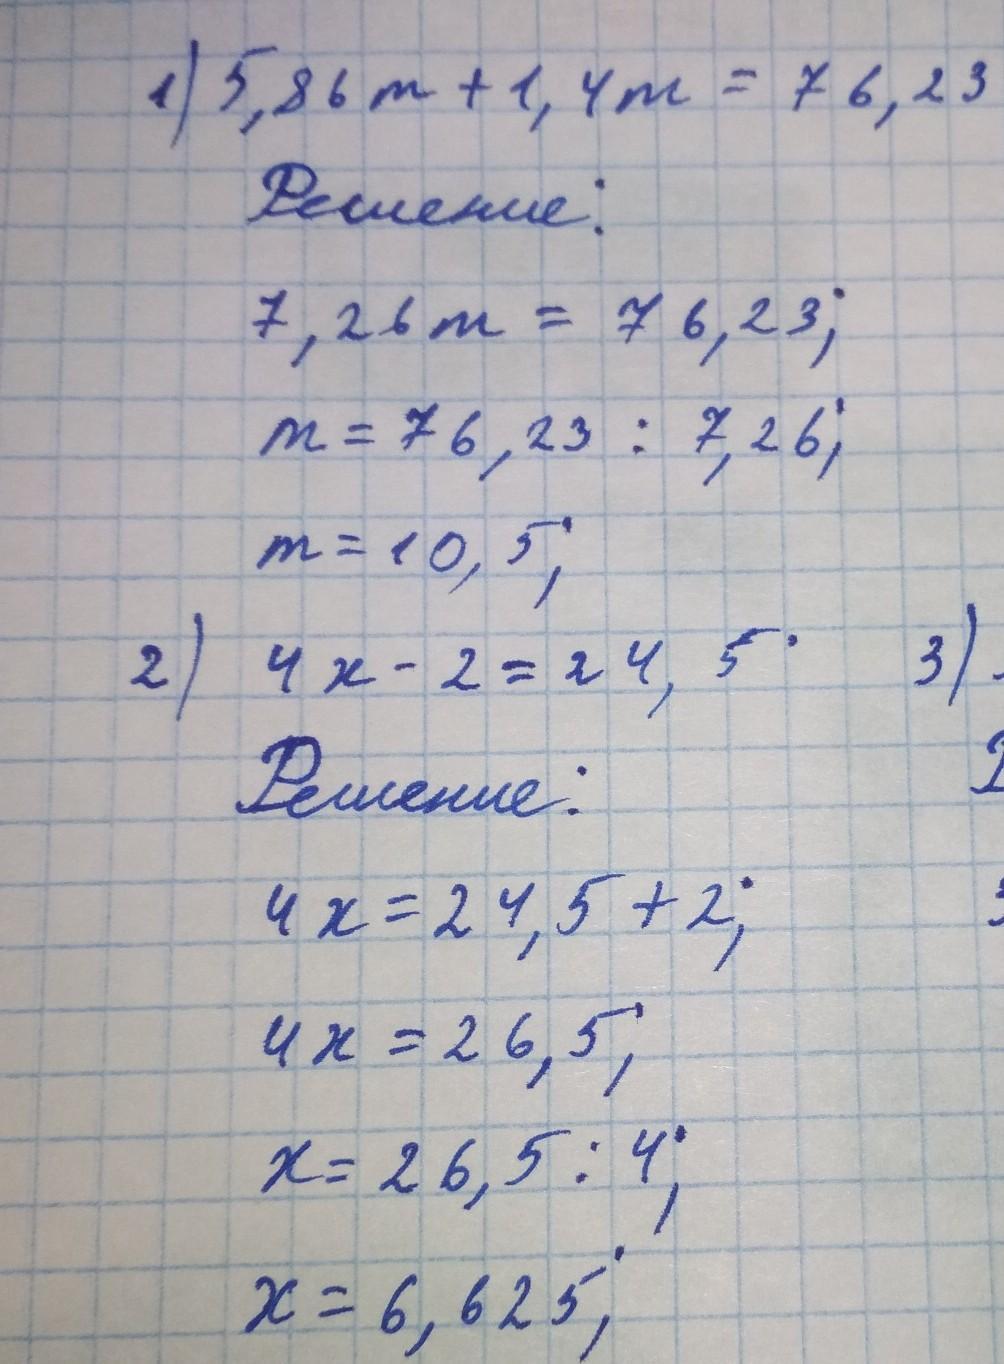 1) 5,86m + 1,4m = 76,23
Решение:
7,26m = 76,23;
m = 76,23 : 7,26;
m = 10,5;
2) 4x - 2 = 24,5 3)
Решение:
4x = 24,5 + 2;
4x = 26,5;
x = 26,5 : 4;
x = 6,625;